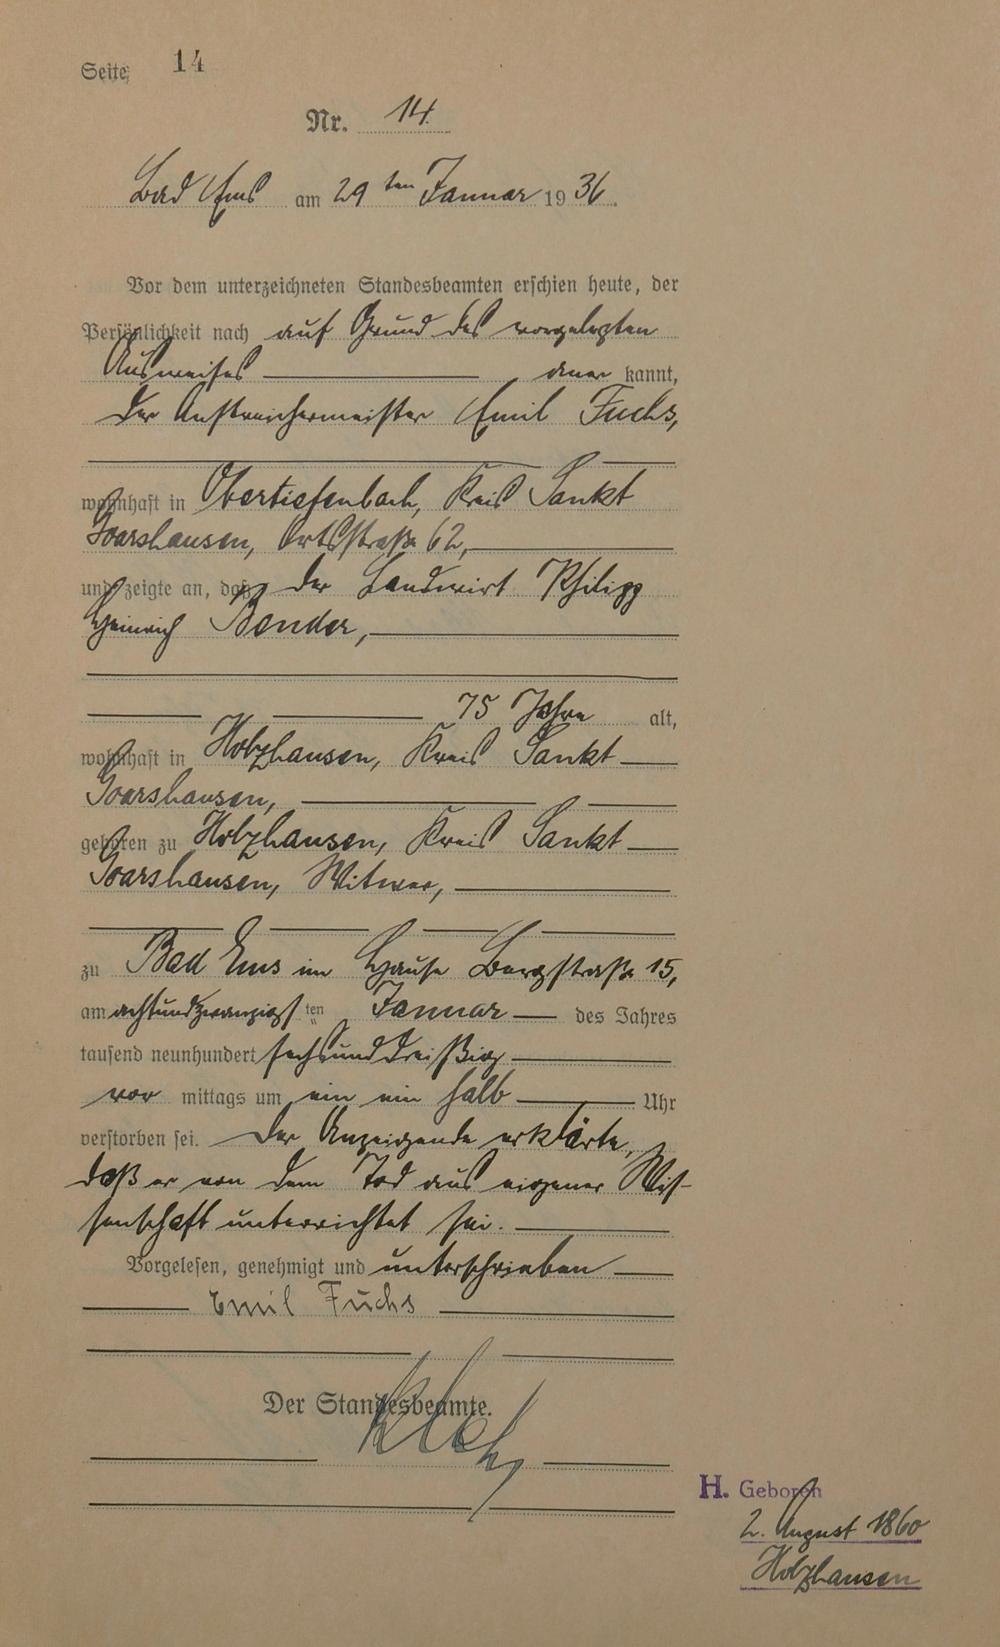 Seite 14
Nr. 14.
Bad Ems am 29ten Januar 1936.
Vor dem unterzeichneten Standesbeamten erschien heute, der
Persönlichkeit nach auf Grund des vorgelegten
Ausweises anerkannt,
der Anstreichermeister Emil Fuchs,
wohnhaft in Obertiefenbach, Kreis Sankt
Goarshausen, Ortsstraße 62,
und zeigte an, daß der Landwirt Philipp
Heinrich Bender,
75 Jahre alt,
wohnhaft in Holzhausen, Kreis Sankt
Goarshausen,
geboren zu Holzhausen, Kreis Sankt
Goarshausen, Witwer,
zu Bad Ems im Hause Bergstraße 15,
am achtundzwanzigsten Januar des Jahres
tausend neunhundert sechsunddreißig
vormittags um ein ein halb Uhr
verstorben sei. Der Anzeigende erklärte,
daß er von dem Tod aus eigener Wis-
senschaft unterrichtet sei.
Vorgelesen, genehmigt und unterschrieben
Emil Fuchs
Der Standesbeamte.
H. Geboren
2. August 1860
Holzhausen